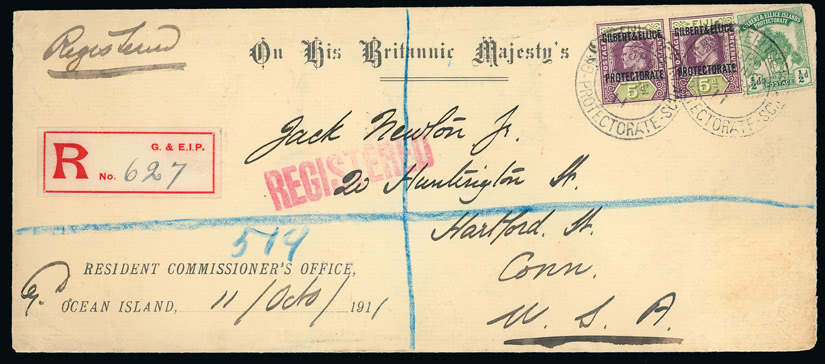 Registered
On His Britannic Majesty's
FIJI
GILBERT & ELLICE
PROTECTORATE
5d
FIJI
GILBERT & ELLICE
PROTECTORATE
5d
GILBERT & ELLICE ISLANDS
PROTECTORATE
½d ½d
PROTECTORATE
PROTECTORATE
R
G. & E.I.P.
No. 627
REGISTERED
Jack Newton Jr.
20 Huntington St.
Hartford. St.
Conn.
U. S. A.
514
RESIDENT COMMISSIONER'S OFFICE,
OCEAN ISLAND, 11/Octo/ 1911